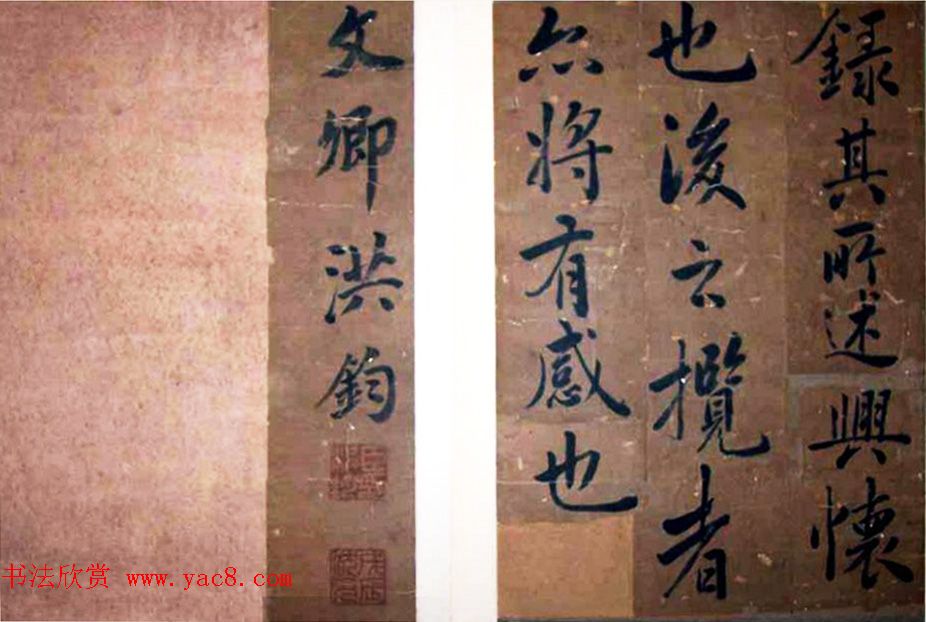 錄其所述興懷
也後之攬者
亦將有感也
文卿洪鈞
书法欣赏 www.yac8.com